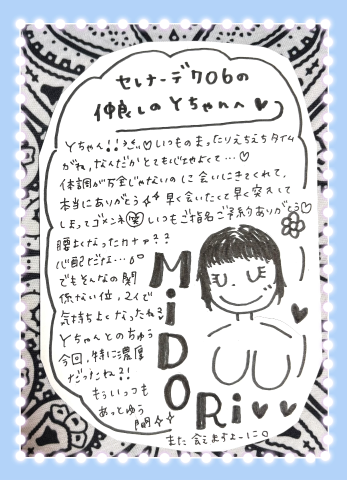 セレナーデ706の
仲良しのYちゃんへ♡
Yちゃん!!♡いつものまったりえちえちタイム
がね、なんだかとてもじわよくて…♡
体調が万全じゃないのに会いにきてくれて、
本当にありがとう 早く会いたくて早く突入して
しまってゴメンネ(笑)いつもご指名ご予約ありがとう♡
腰大丈夫になったカナァ??
心配だな…。
でもそんなの関
係ない位、2人で
気持ちよくなったね?
Yちゃんとのちゅう
今回、特に濃厚
だったね?!
もういつも
あっとゆう
間
MiDORi♥♥
また会えますよーに。